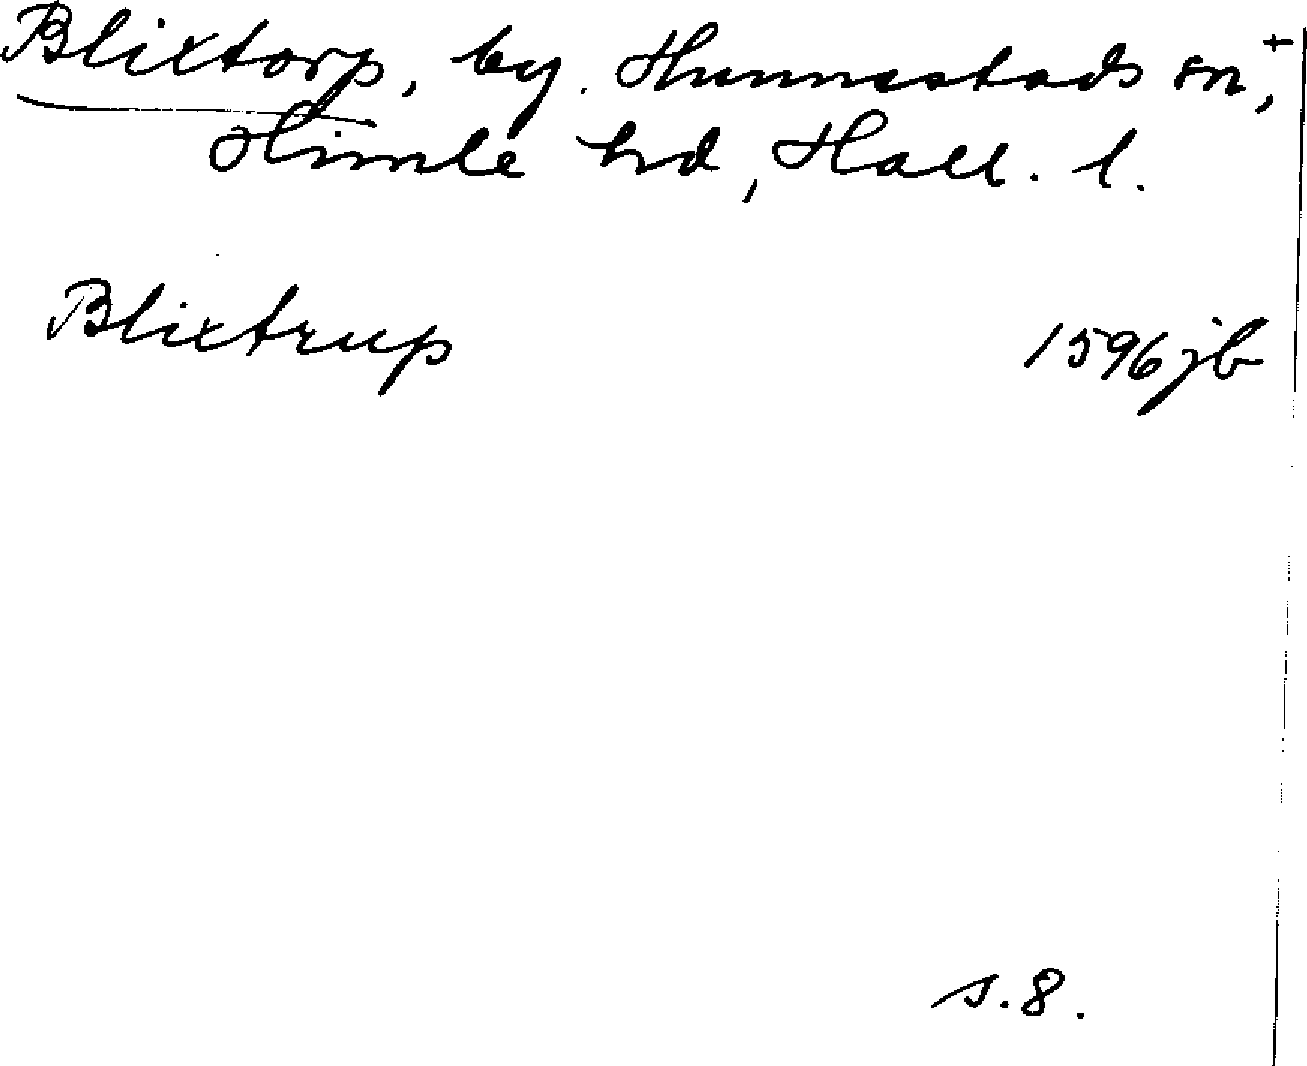 Blixtorp, by. Hunnestads sn, +
Himle hd, Hall. l.
Blixtrup 1596 jb
s. 8.